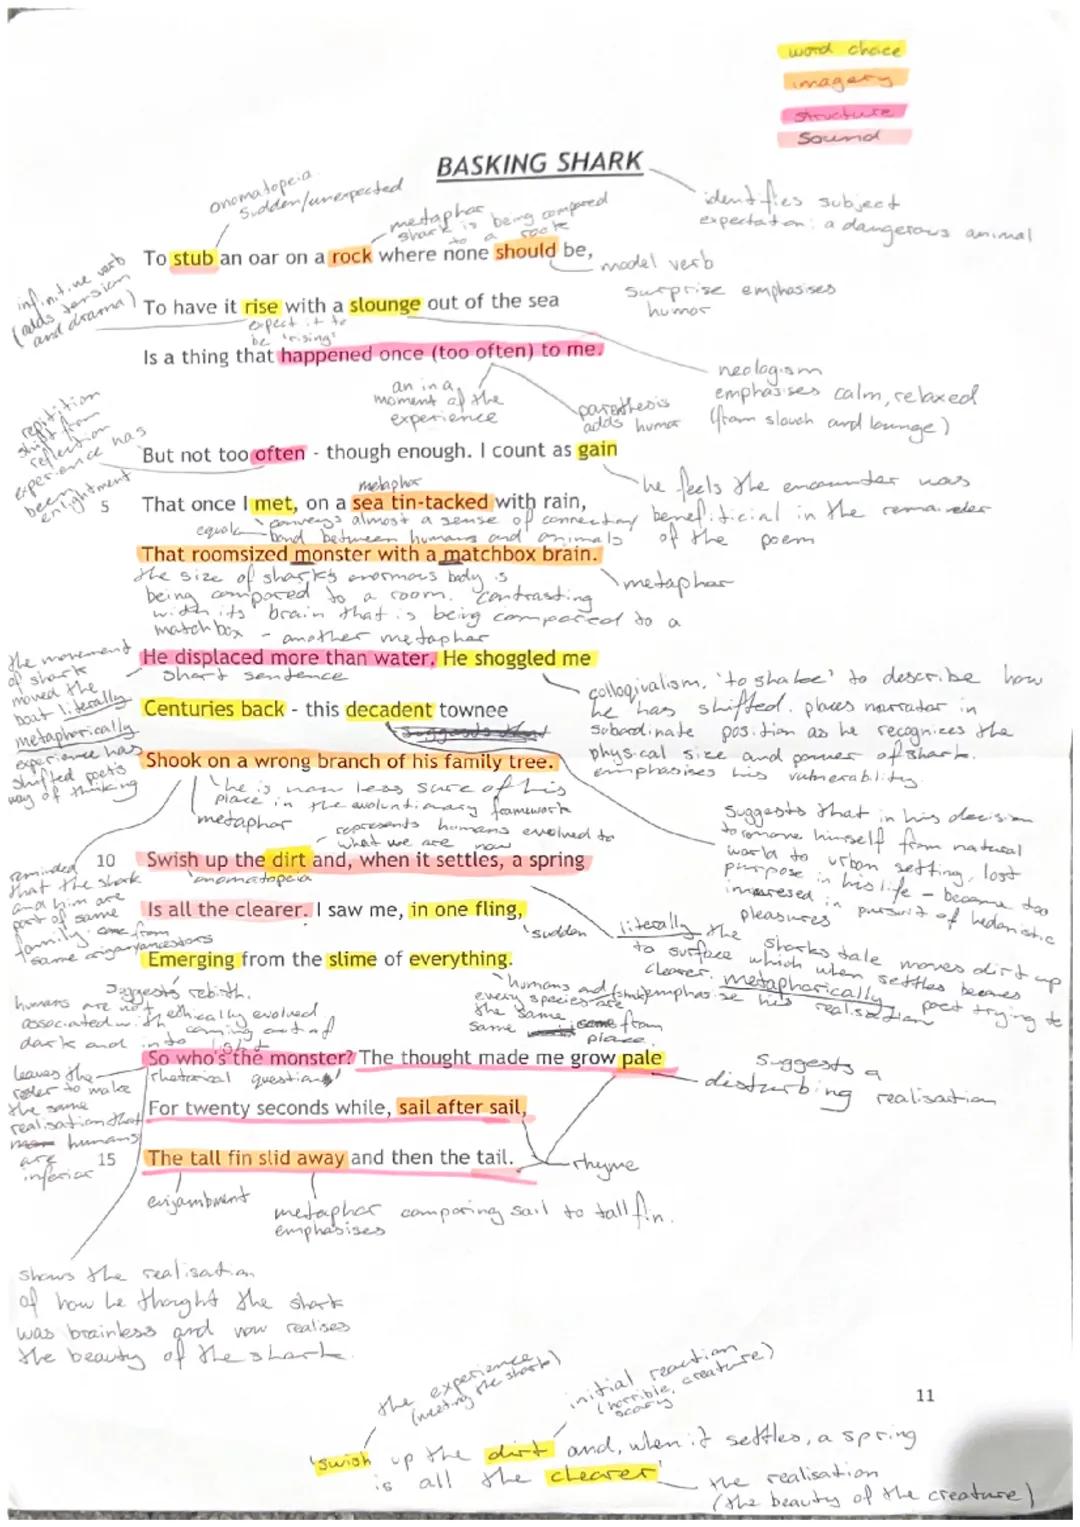 word choice
imagery
structure
Sound
BASKING SHARK
onomatopeia
sudden/unexpected
metaphor
shark is being compared
to a rock
identifies subject
expectation: a dangerous animal
To stub an oar on a rock where none should be,
model verb
infinitive verb
(adds tension
and drama)
surprise emphasises
humor
To have it rise with a slounge out of the sea
expect it to
be 'rising'
Is a thing that happened once (too often) to me.
neologism
emphasises calm, relaxed
(from slouch and lounge)
an in a
moment of the
experience
parethesis
adds humor
repitition
shift from
reflection
experience has
been
enlightment
But not too often - though enough. I count as gain
metaphor
he feels the encounter was
benefiticial in the remainder
of the poem
5 That once I met, on a sea tin-tacked with rain,
equal
conveys almost a sense of connection/
bond between humans and animals
That roomsized monster with a matchbox brain.
metaphor
the size of sharks enormous body is
being compared to a room. Contrasting
with its brain that is being compared to a
matchbox - another metaphor
the movement
of shark
moved the
boat literally
metaphorically
experience has
shifted poets
way of thinking
He displaced more than water. He shoggled me
short sentence
colloquialism, 'to shake' to describe how
he has shifted. places narrator in
subordinate position as he recognizes the
physical size and power of shark.
emphasises his vulnerability.
Centuries back - this decadent townee
Shook on a wrong branch of his family tree.
he is now less sure of his
place in the evolutionary framework
metaphor
represents humans evolved to
what we are now
suggests that in his decision
to remove himself from natural
world to urban setting, lost
purpose in his life - become too
interesed in pursuit of hedonistic
pleasures
reminded
that the shark
and him are
part of same
family. come from
same origin/ancestors
10 Swish up the dirt and, when it settles, a spring
onomatopeia
Is all the clearer. I saw me, in one fling,
sudden
literally the sharks tale moves dirt up
to surface which when settles becomes
clearer. metaphorically poet trying to
emphasise his realisation
Emerging from the slime of everything.
Suggests rebirth.
coming out of
dark and into light
humans are not ethically evolved
associated with
humans and shark
every species are
the same
same come from
place
So who's the monster? The thought made me grow pale
rhetorical question
leaves the
reder to make
the same
realisation that
humans
are
inferior
suggests a
disturbing realisation
For twenty seconds while, sail after sail,
15 The tall fin slid away and then the tail.
rhyme
enjambment
metaphor comparing sail to tall fin.
emphasises
shows the realisation
of how he thought the shark
was brainless and now realises
the beauty of the shark.
the experience
(meeting the shark)
initial reaction
(horrible, creature)
scary
11
'swish up the dirt and, when it settles, a spring
is all the clearer'
the realisation
(the beauty of the creature)